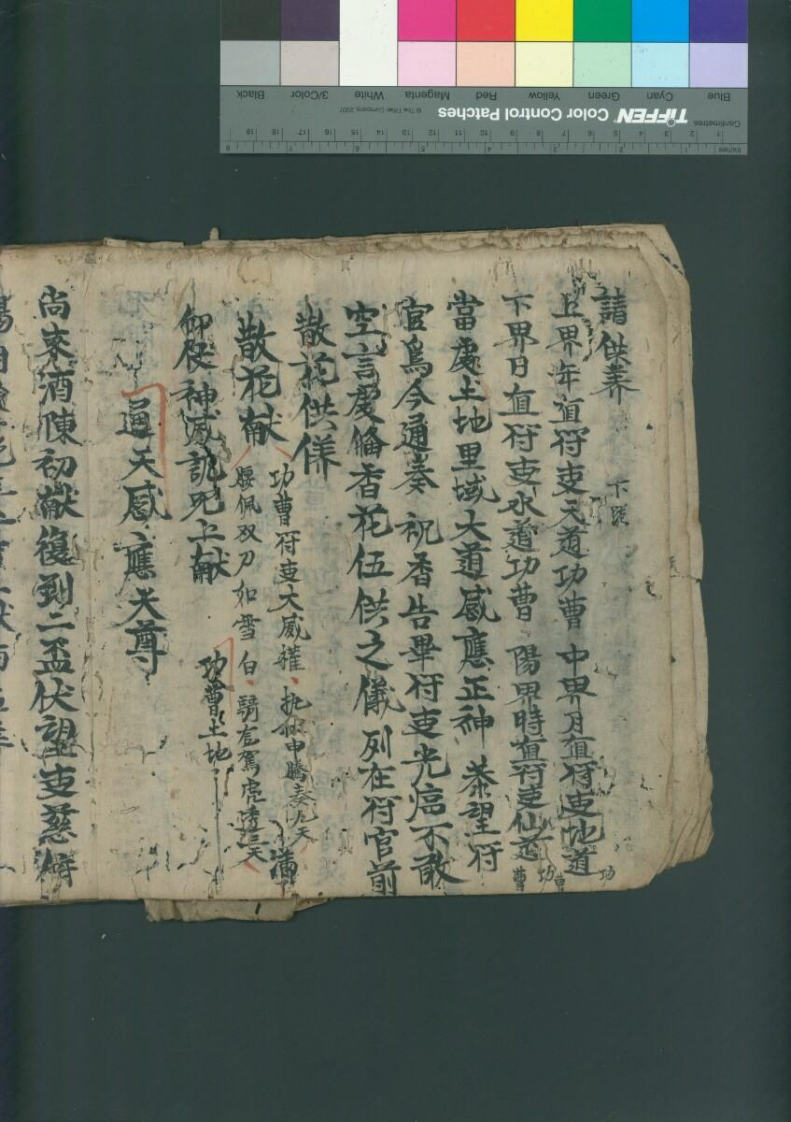 請供养 下跪
上界年直符吏天道功曹 中界月直符吏地道功
下界日直符吏水道功曹 陽界時直符吏仙道功曹
當處土地里域大道感應正神 恭望符
官為今通奏 祝香告畢符吏光臨不敢
空言虔俻香花伍供之儀列在符官前
散花供養 功曹符吏大威權 執狀申騰奏九天 滿
散花献 腰佩双刀如雪白 騎龙駕虎透三天
仰伏神威 上献 功曹土地
通天感應天尊
尚来酒陳初献復到二盃伏望吏慈俯
Black 3/Color White Magenta Red Yellow Green Cyan Blue
TIFFEN Color Control Patches © The Tiffen Company, 2007
Centimetres
Inches